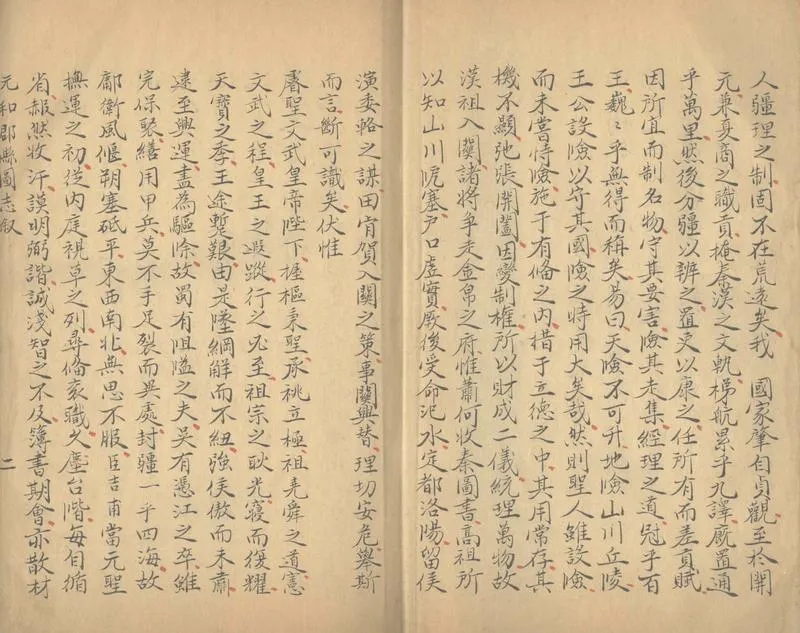 人疆理之制固不在荒遠矣我 國家肇自貞觀至於開
元兼夏商之職貢掩秦漢之文軌梯航累乎九譯廐置通
乎萬里然後分疆以辨之置吏以康之任所有而差貢賦
因所宜而制名物守其要害險其走集經理之道冠乎百
王巍〻乎無得而稱矣易曰天險不可升地險山川丘陵
王公設險以守其國險之時用大矣哉然則聖人雖設險
而未嘗恃險施于有備之內措于立德之中其用常存其
機不顯弛張開闔因變制權所以財成二儀統理萬物故
漢祖入關諸將爭走金帛之府惟蕭何收秦圖書高祖所
以知山川阨塞户口虛實厥後受命汜水定都洛陽留侯
演委輅之謀田肯賀入關之策事關興替理切安危舉斯
而言斷可識矣伏惟
睿聖文武皇帝陛下握樞秉聖承祧立極祖堯舜之道憲
文武之程皇王之遐蹤行之必至祖宗之耿光寢而復耀
天寶之季王途蹔艱由是墜綱解而不紐強侯傲而未肅
逮至興運盡為驅除故蜀有阻隘之夫吳有憑江之卒雖
完保聚繕用甲兵莫不手足裂而異處封疆一乎四海故
鄘衛風偃朔塞砥平東西南北無思不服臣吉甫當元聖
撫運之初從内庭視草之列尋備衮職久塵台階每自循
省赧然收汗謨明弼諧誠淺智之不及簿書期會亦散材
元和郡縣圖志叙 二